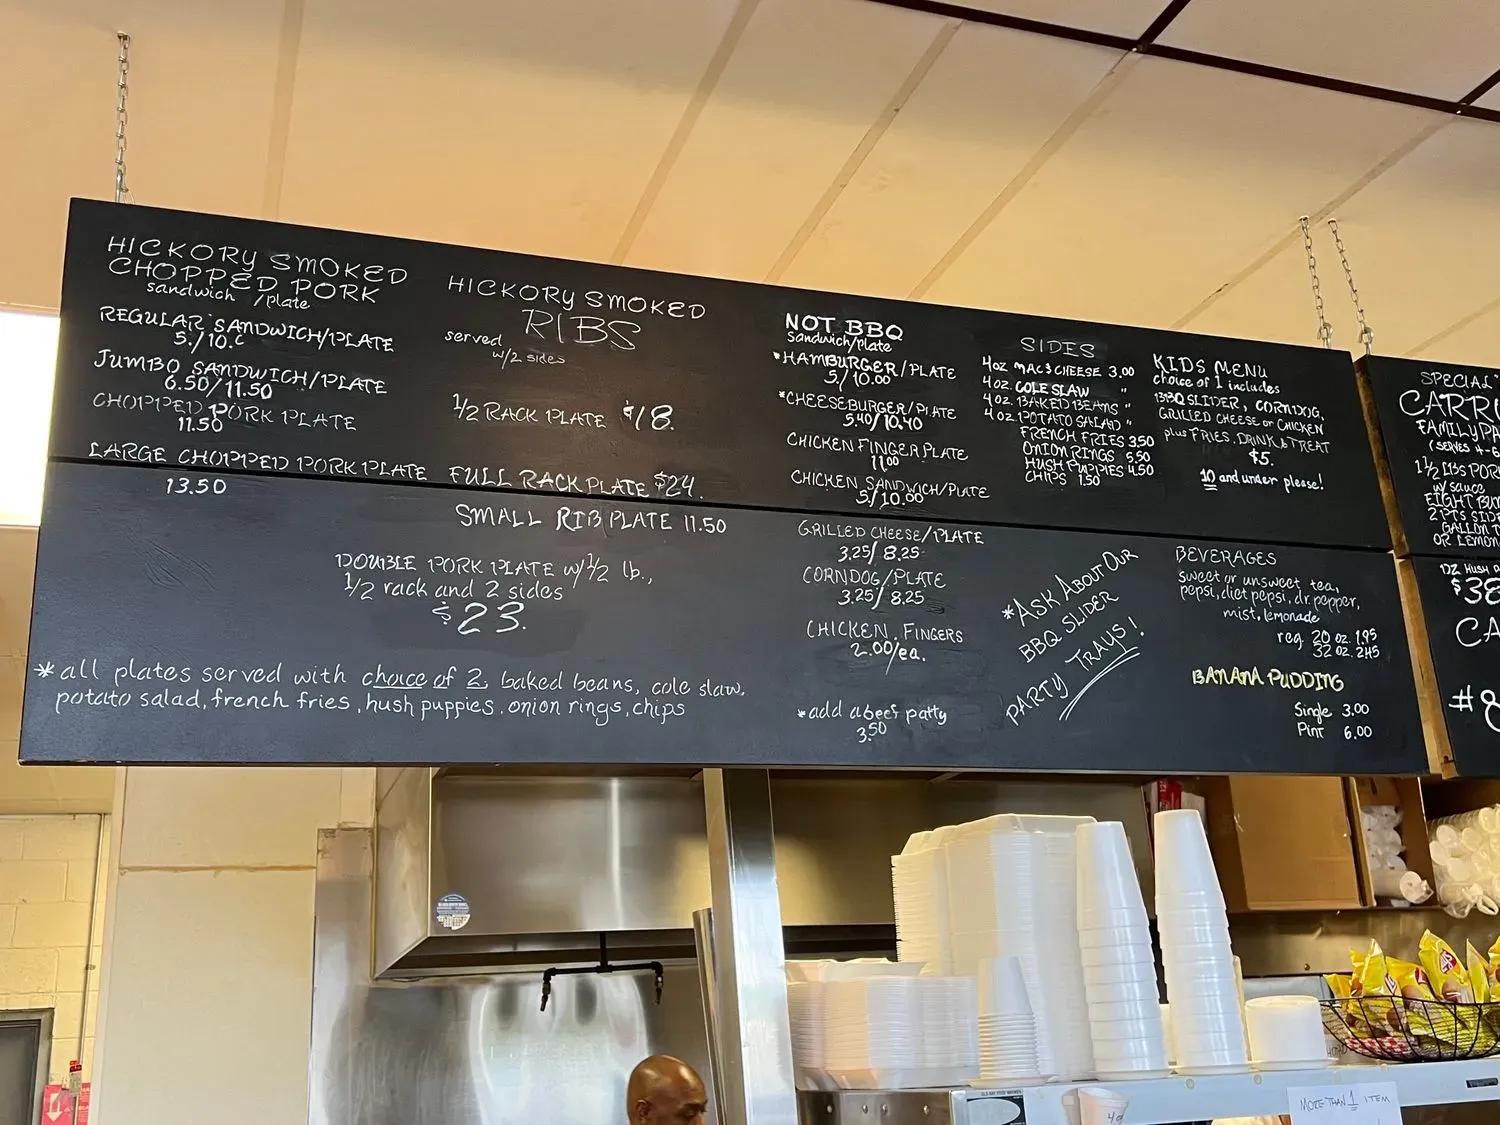 HICKORY SMOKED
CHOPPED PORK
sandwich /plate
REGULAR SANDWICH/PLATE
5./10.
JUMBO SANDWICH/PLATE
6.50/11.50
CHOPPED PORK PLATE
11.50
LARGE CHOPPED PORK PLATE
13.50
HICKORY SMOKED
RIBS
served
w/2 sides
1/2 RACK PLATE $18.
FULL RACK PLATE $24.
SMALL RIB PLATE 11.50
DOUBLE PORK PLATE w/1/2 lb.,
1/2 rack and 2 sides
$23.
*all plates served with choice of 2, baked beans, cole slaw,
potato salad, french fries, hush puppies, onion rings, chips
NOT BBQ
Sandwich/plate
*HAMBURGER/PLATE
5./10.00
*CHEESEBURGER/PLATE
5.40/10.40
CHICKEN FINGER PLATE
11.00
CHICKEN SANDWICH/PLATE
5/10.00
GRILLED CHEESE/PLATE
3.25/8.25
CORNDOG/PLATE
3.25/8.25
CHICKEN FINGERS
2.00/ea.
*add a beef patty
3.50
SIDES
4oz MAC & CHEESE 3.00
4oz. COLE SLAW "
4oz. BAKED BEANS "
4oz. POTATO SALAD "
FRENCH FRIES 3.50
ONION RINGS 5.50
HUSH PUPPIES 4.50
CHIPS 1.50
*ASK ABOUT OUR
BBQ SLIDER
PARTY TRAYS!
KIDS MENU
choice of 1 includes
BBQ SLIDER, CORNDOG,
GRILLED CHEESE or CHICKEN
plus FRIES, DRINK & TREAT
$5.
10 and under please!
BEVERAGES
sweet or unsweet tea,
pepsi, diet pepsi, dr. pepper,
mist, lemonade
reg. 20 oz. 1.95
32 oz. 2.45
BANANA PUDDING
Single 3.00
Pint 6.00
SPECIAL
FAMILY PA
(SERVES 4-6
1 1/2 LBS PORK
w/ sauce
EIGHT BU
2 PTS SIDE
GALLON T
OR LEMON
DZ HUSH P
$38
CA
#8
MORE THAN 1 ITEM